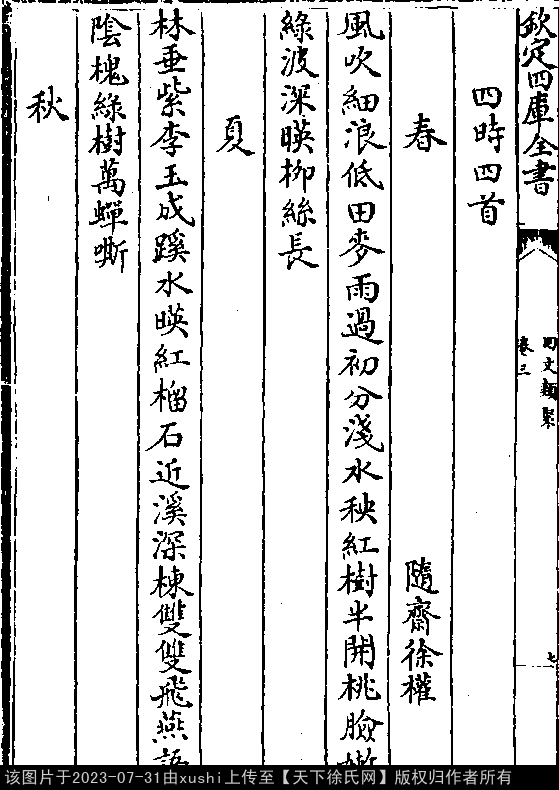 欽定四庫全書
回文類聚
卷三
七
四時四首
春
隨齋徐權
風吹細浪低田麥雨過初分淺水秧紅樹半開桃臉嫩
綠波深暎柳絲長
夏
林垂紫李玉成蹊水暎紅榴石近溪深棟雙雙飛燕語
陰槐綠樹萬蟬嘶
秋
该图片于2023-07-31由xushi上传至【天下徐氏网】版权归作者所有